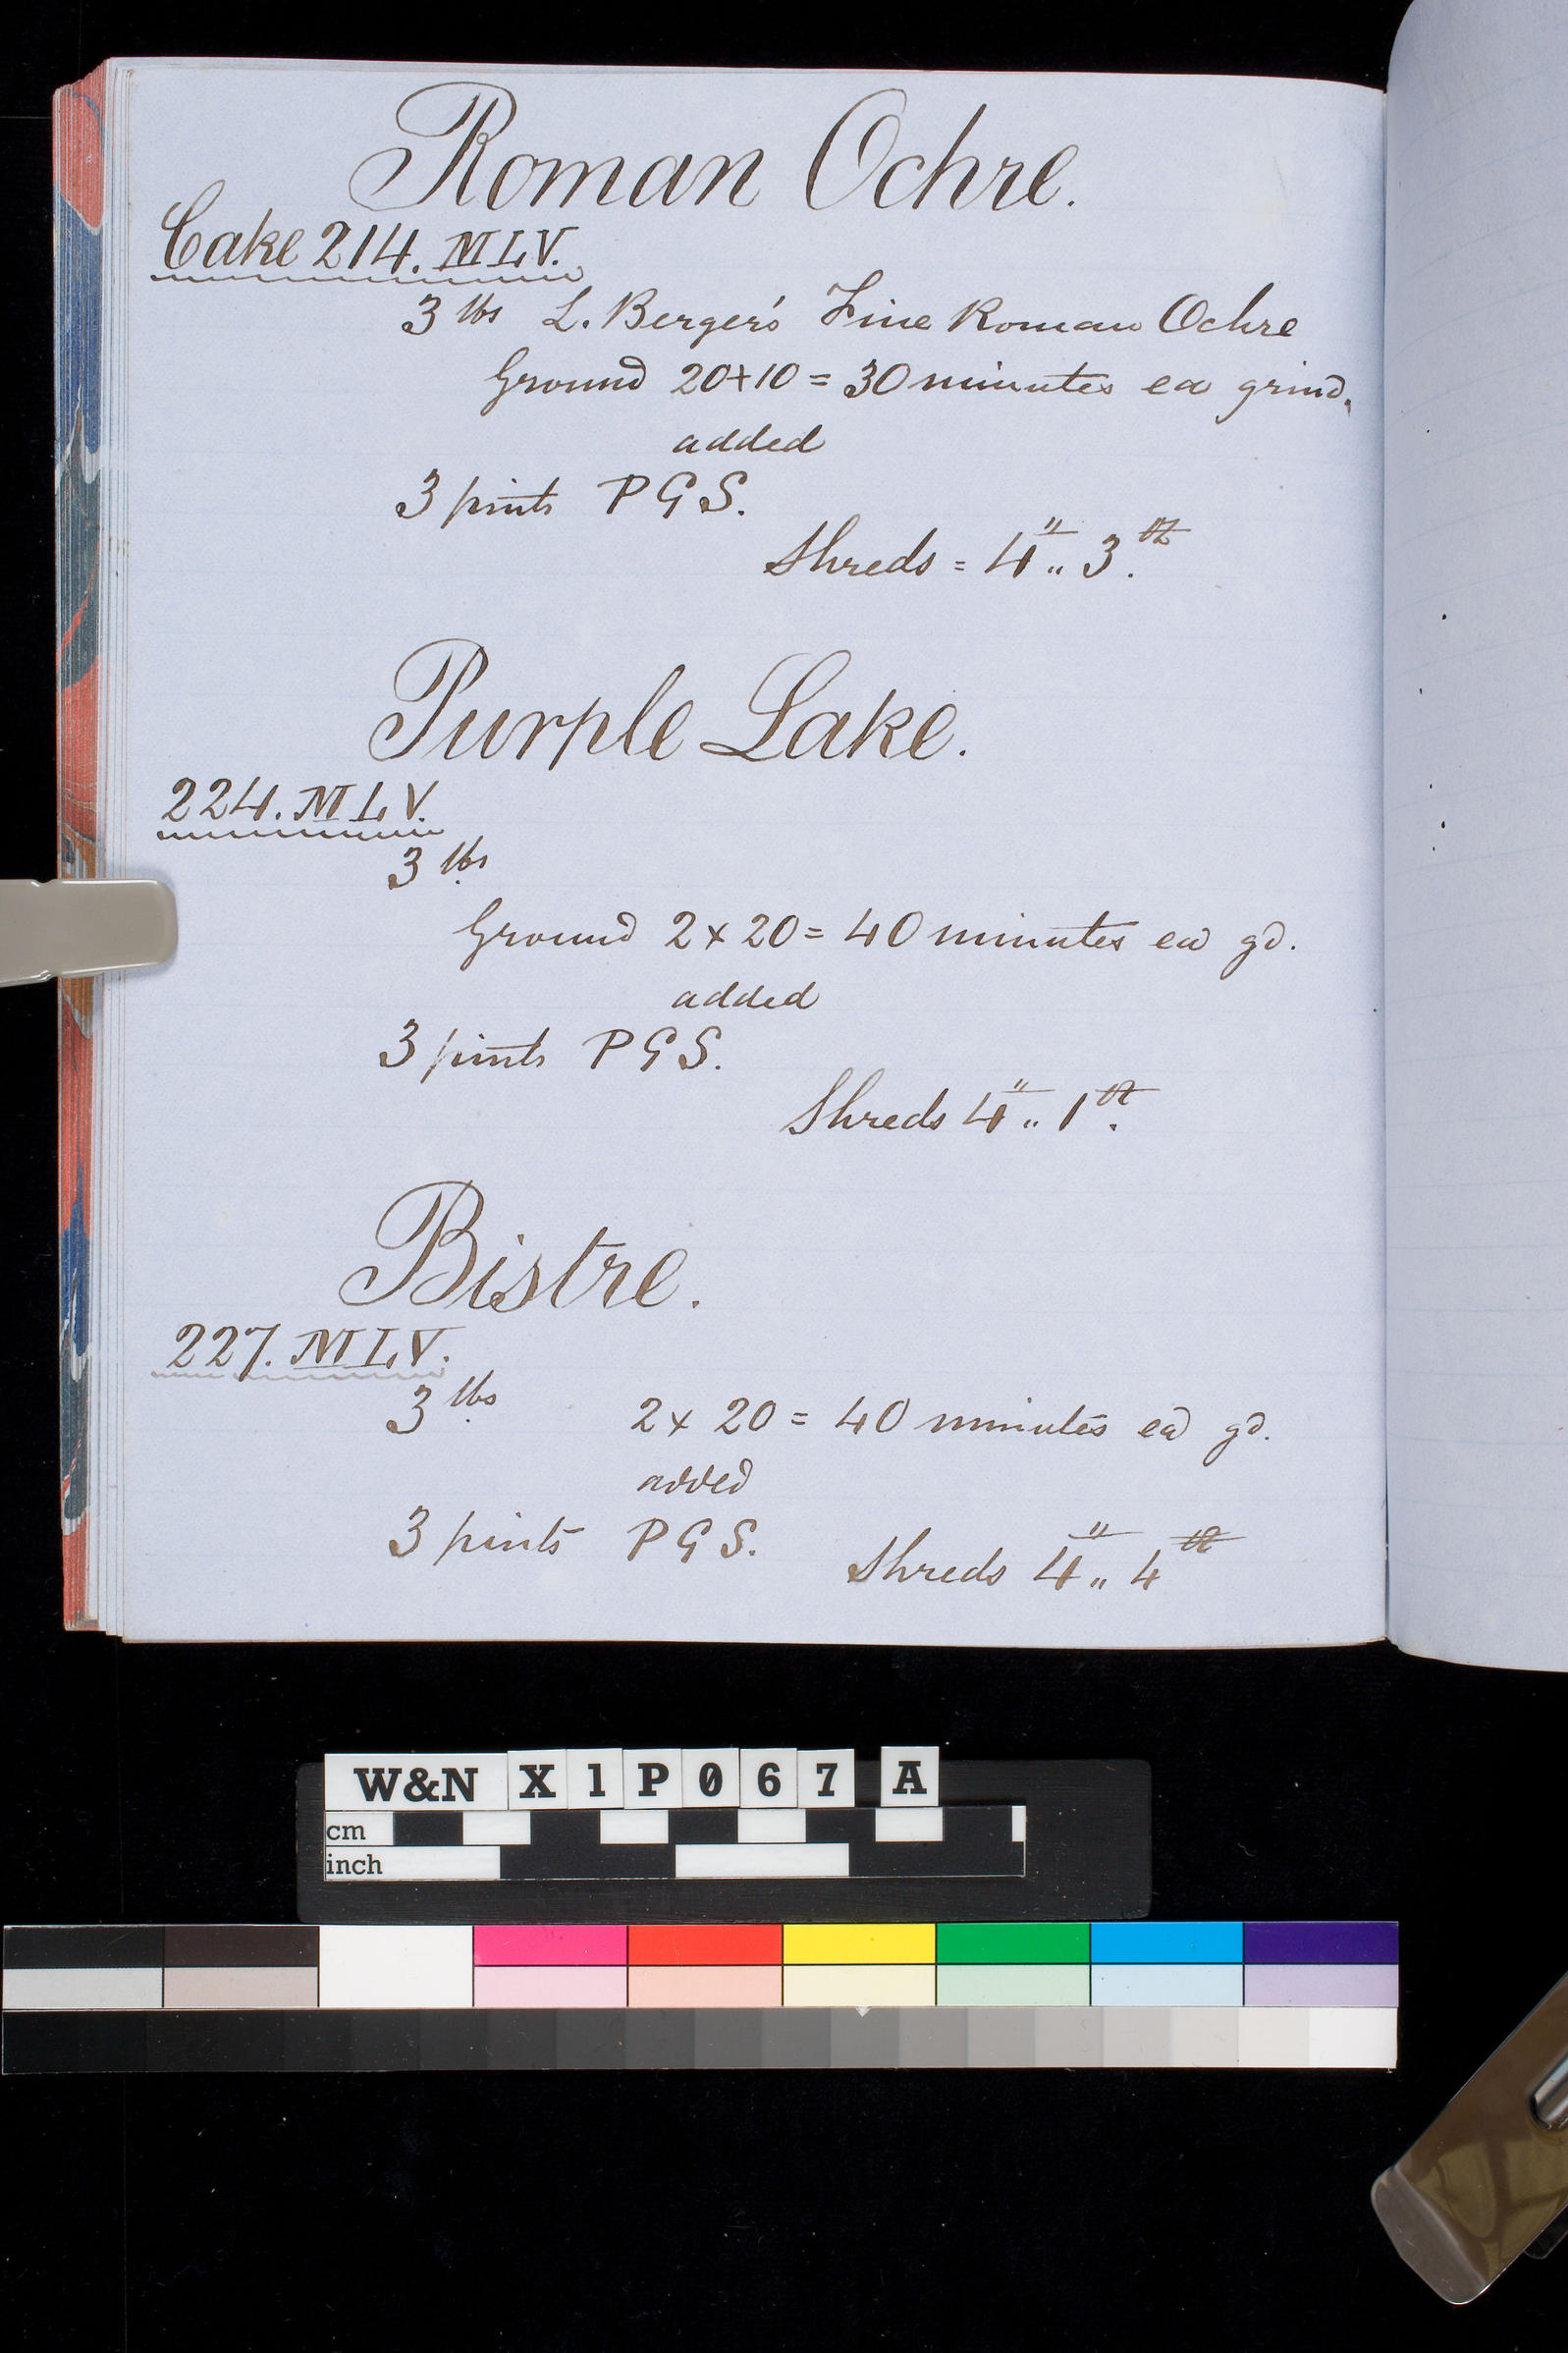 Roman Ochre.
Cake 214. MLV.
3 lbs L. Berger's Fine Roman Ochre
Ground 20+10 = 30 minutes ea grind.
added
3 pints P G S.
Shreds = 4 " .. 3 th.
Purple Lake.
224. MLV.
3 lbs
Ground 2 x 20 = 40 minutes ea gd.
added
3 pints P G S.
Shreds 4 " .. 1 th.
Bistre.
227. MLV.
3 lbs 2 x 20 = 40 minutes ea gd.
added
3 pints P G S. Shreds 4 " .. 4 th
W&N X1P067 A
cm
inch